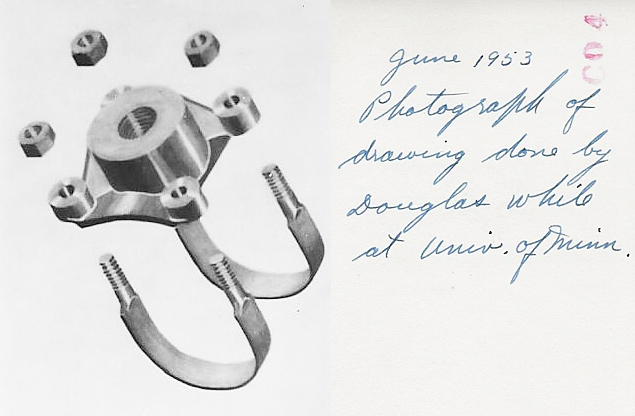 C04
June 1953
Photograph of
drawing done by
Douglas while
at Univ. of Minn.